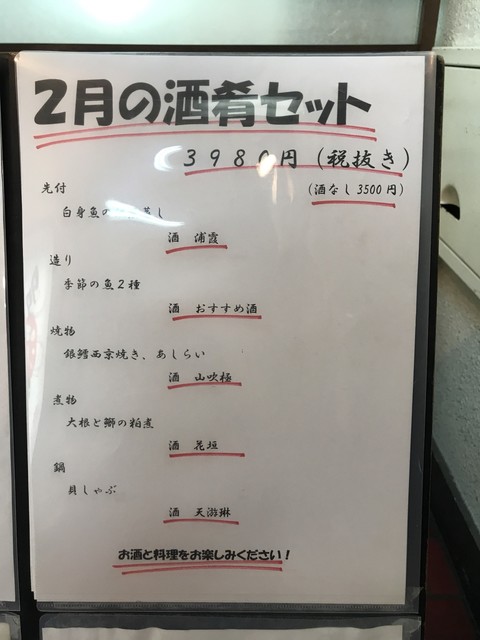 2月の酒肴セット
3980円（税抜き）
（酒なし3500円）
先付
白身魚の蒸し
酒 浦霞
造り
季節の魚2種
酒 おすすめ酒
焼物
銀鱈西京焼き、あしらい
酒 山吹極
煮物
大根と鰤の粕煮
酒 花垣
鍋
貝しゃぶ
酒 天遊琳
お酒と料理をお楽しみください！